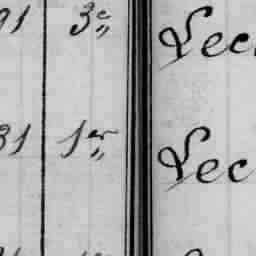 91 3e Lec
31 1er Lec